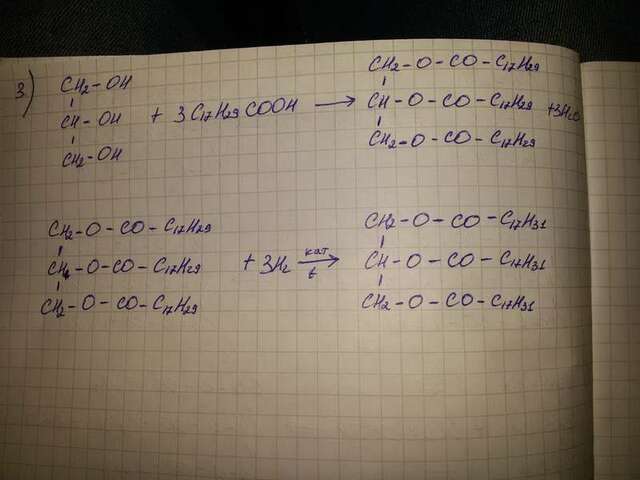 3)
CH₂-OH
CH-OH + 3C₁₇H₂₉COOH →
CH₂-OH
CH₂-O-CO-C₁₇H₂₉
CH-O-CO-C₁₇H₂₉ +3H₂O
CH₂-O-CO-C₁₇H₂₉
CH₂-O-CO-C₁₇H₂₉
CH-O-CO-C₁₇H₂₉ + 3H₂ кат t →
CH₂-O-CO-C₁₇H₂₉
CH₂-O-CO-C₁₇H₃₁
CH-O-CO-C₁₇H₃₁
CH₂-O-CO-C₁₇H₃₁